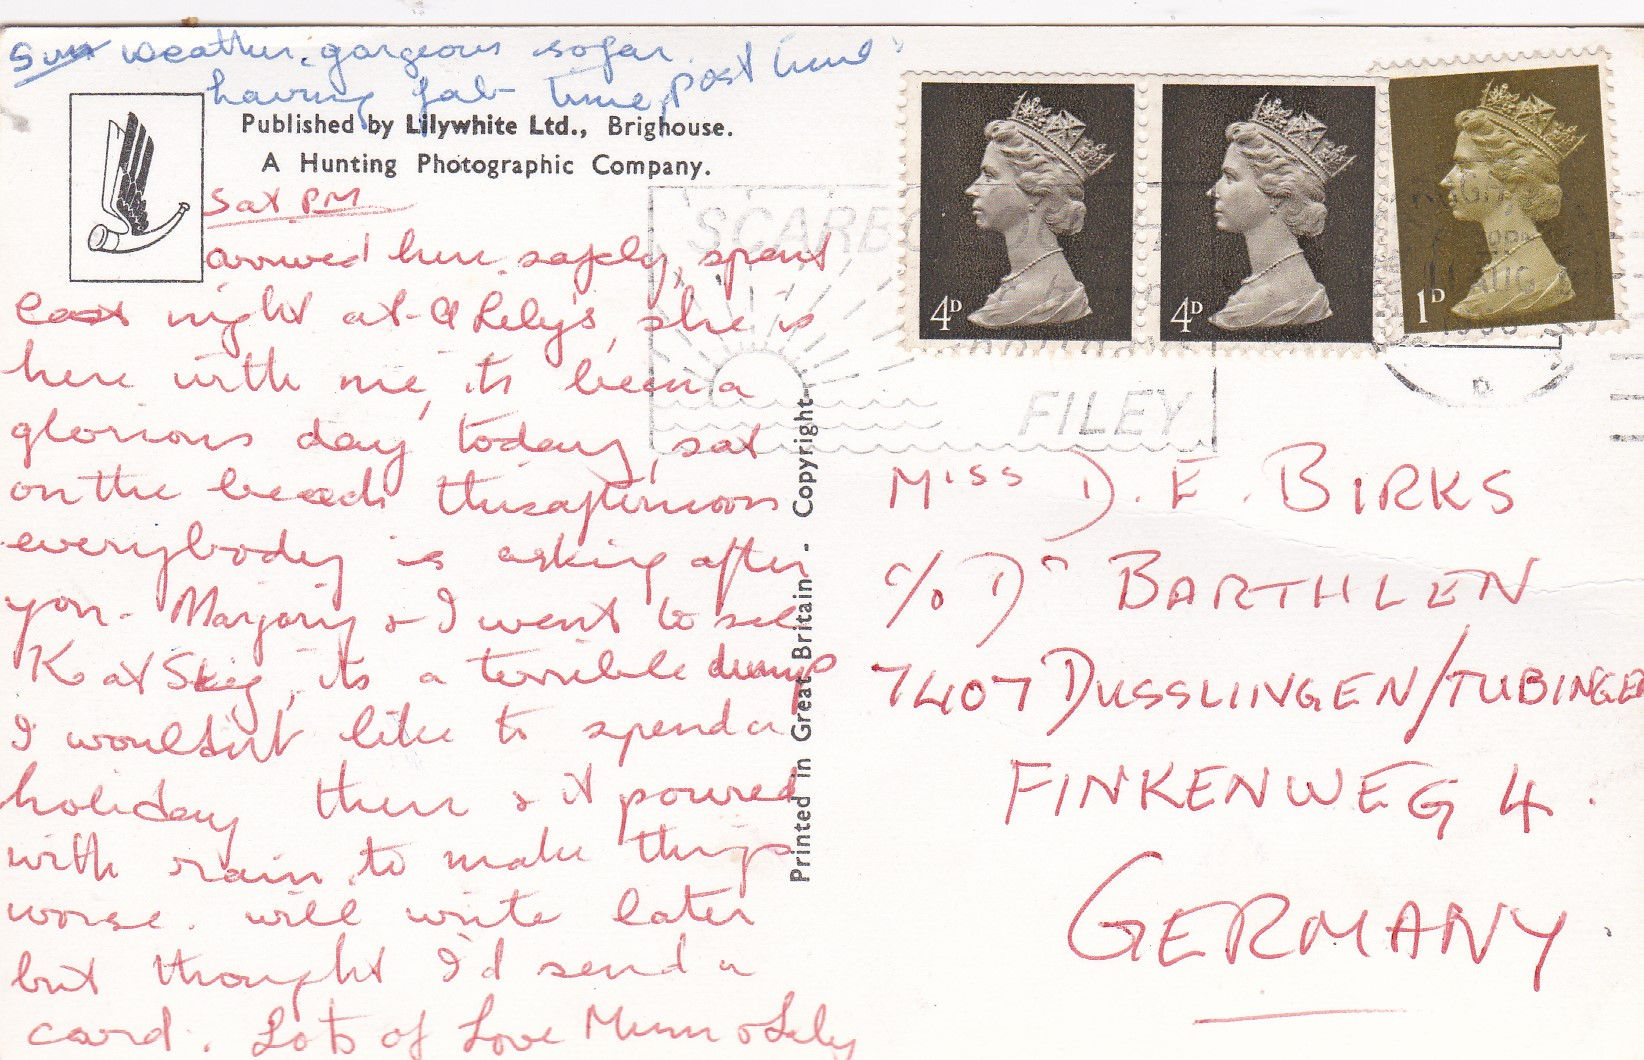 Sun weather gorgeous so far
having fab time, post time
Published by Lilywhite Ltd., Brighouse.
A Hunting Photographic Company.
Sat PM
arrived here safely, spent
last night at A Lily's, she is
here with me, its been a
glorious day today, sat
on the beach this afternoon
everybody is asking after
you - Marjory & I went to see
K at Skeg, its a terrible dump
I wouldn't like to spend a
holiday there & it poured
with rain to make things
worse. will write later
but thought I'd send a
card. Lots of Love Mum & Lily
Printed in Great Britain - Copyright
SCARBO
FILEY
4D
4D
1D
AUG
MISS D. E. BIRKS
c/o Dr BARTHLEN
7407 DUSSLINGEN/TUBINGE
FINKENWEG 4.
GERMANY